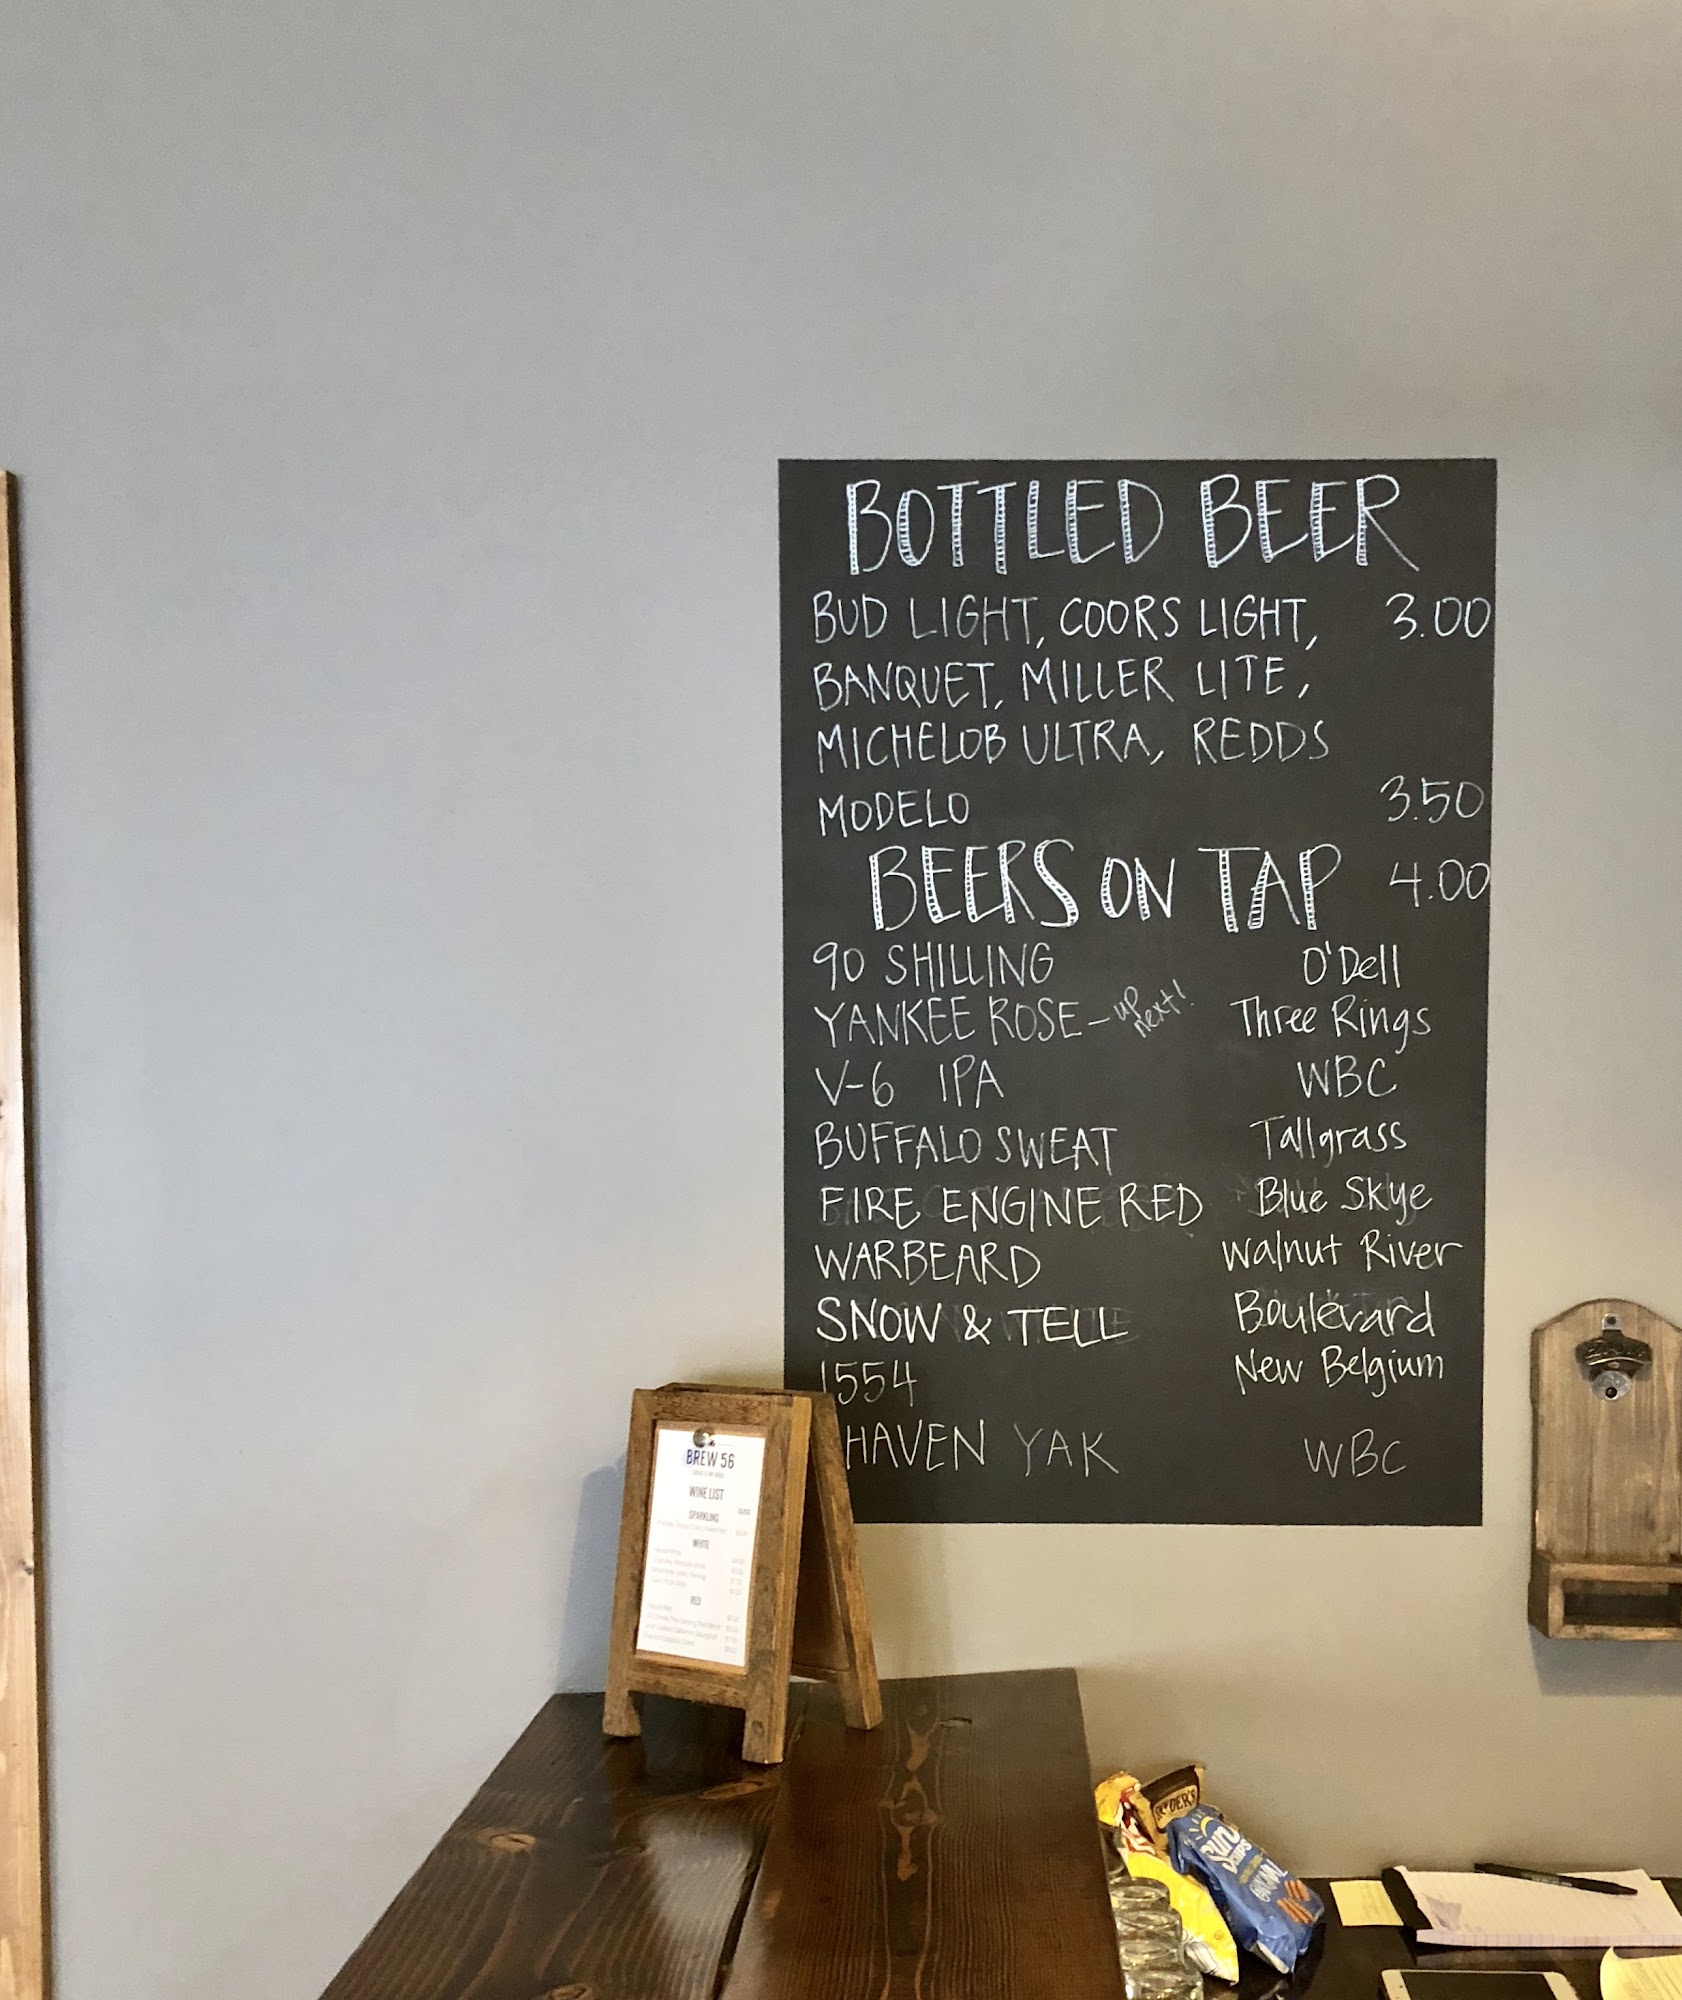 BOTTLED BEER
BUD LIGHT, COORS LIGHT, 3.00
BANQUET, MILLER LITE,
MICHELOB ULTRA, REDDS
MODELO 3.50
BEERS ON TAP 4.00
90 SHILLING O'Dell
YANKEE ROSE - up next! Three Rings
V-6 IPA WBC
BUFFALO SWEAT Tallgrass
FIRE ENGINE RED Blue Skye
WARBEARD Walnut River
SNOW & TELL Boulevard
1554 New Belgium
HAVEN YAK WBC
BREW 56
WINE LIST
SPARKLING
WHITE
RED
SNYDER'S
Sun
CHIPS